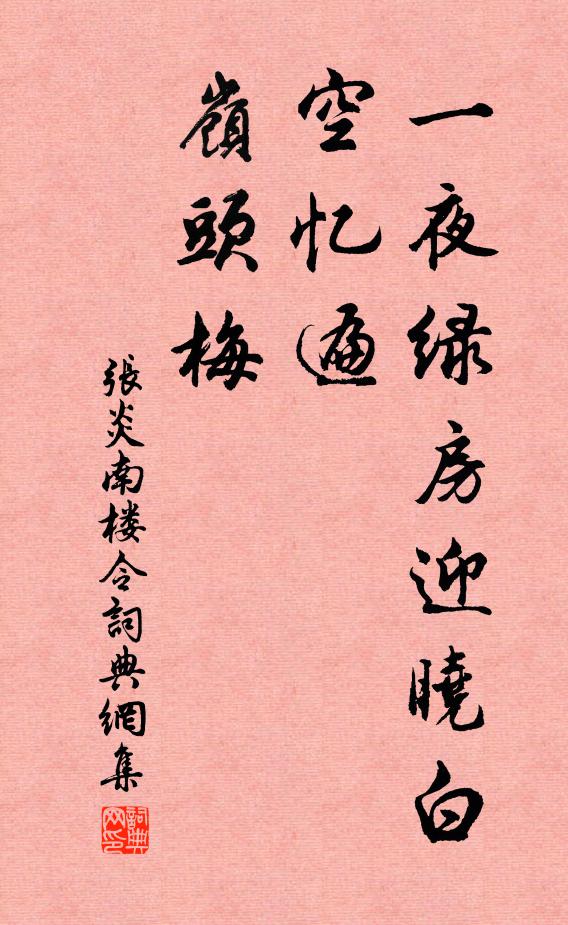 一夜绿房迎曉白
空忆遍
嶺頭梅
張炎南楼令詞典網集
詞典网印